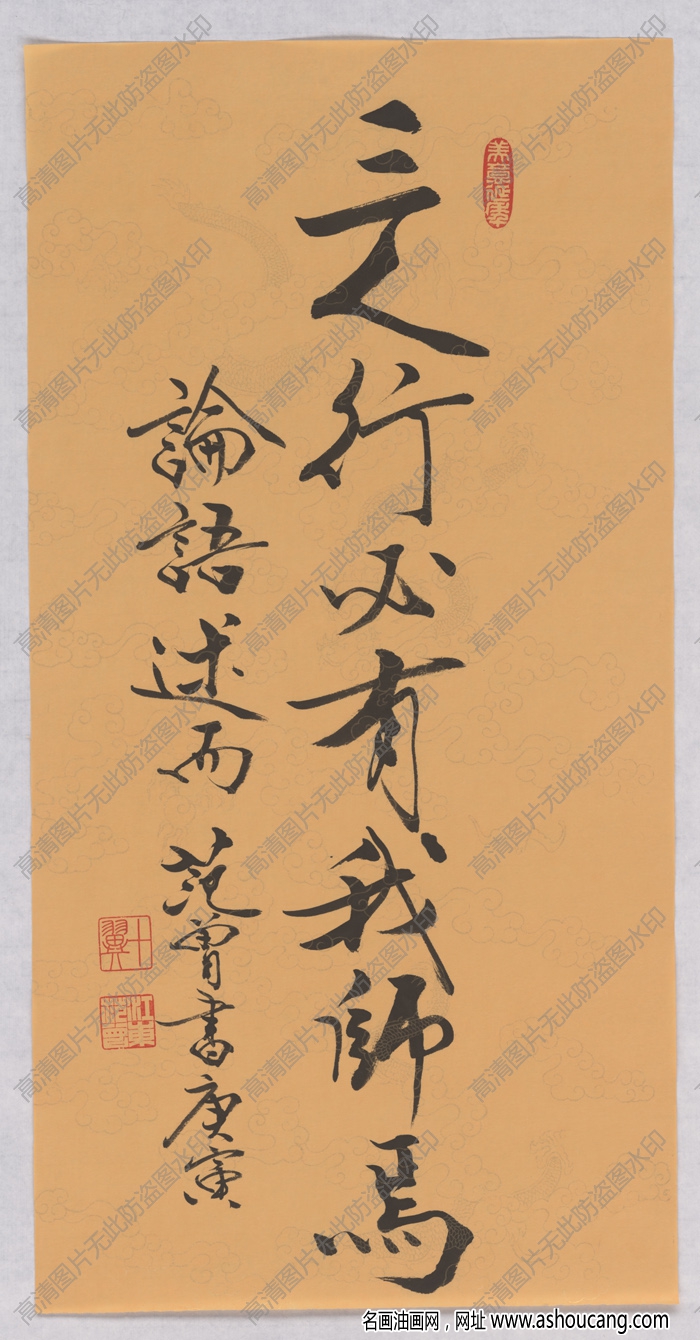 美意延年
三人行必有我師焉
論語述而 范曾書庚寅
十翼
江東范曾
高清图片无此防盗图水印
名画油画网，网址 www.ashoucang.com